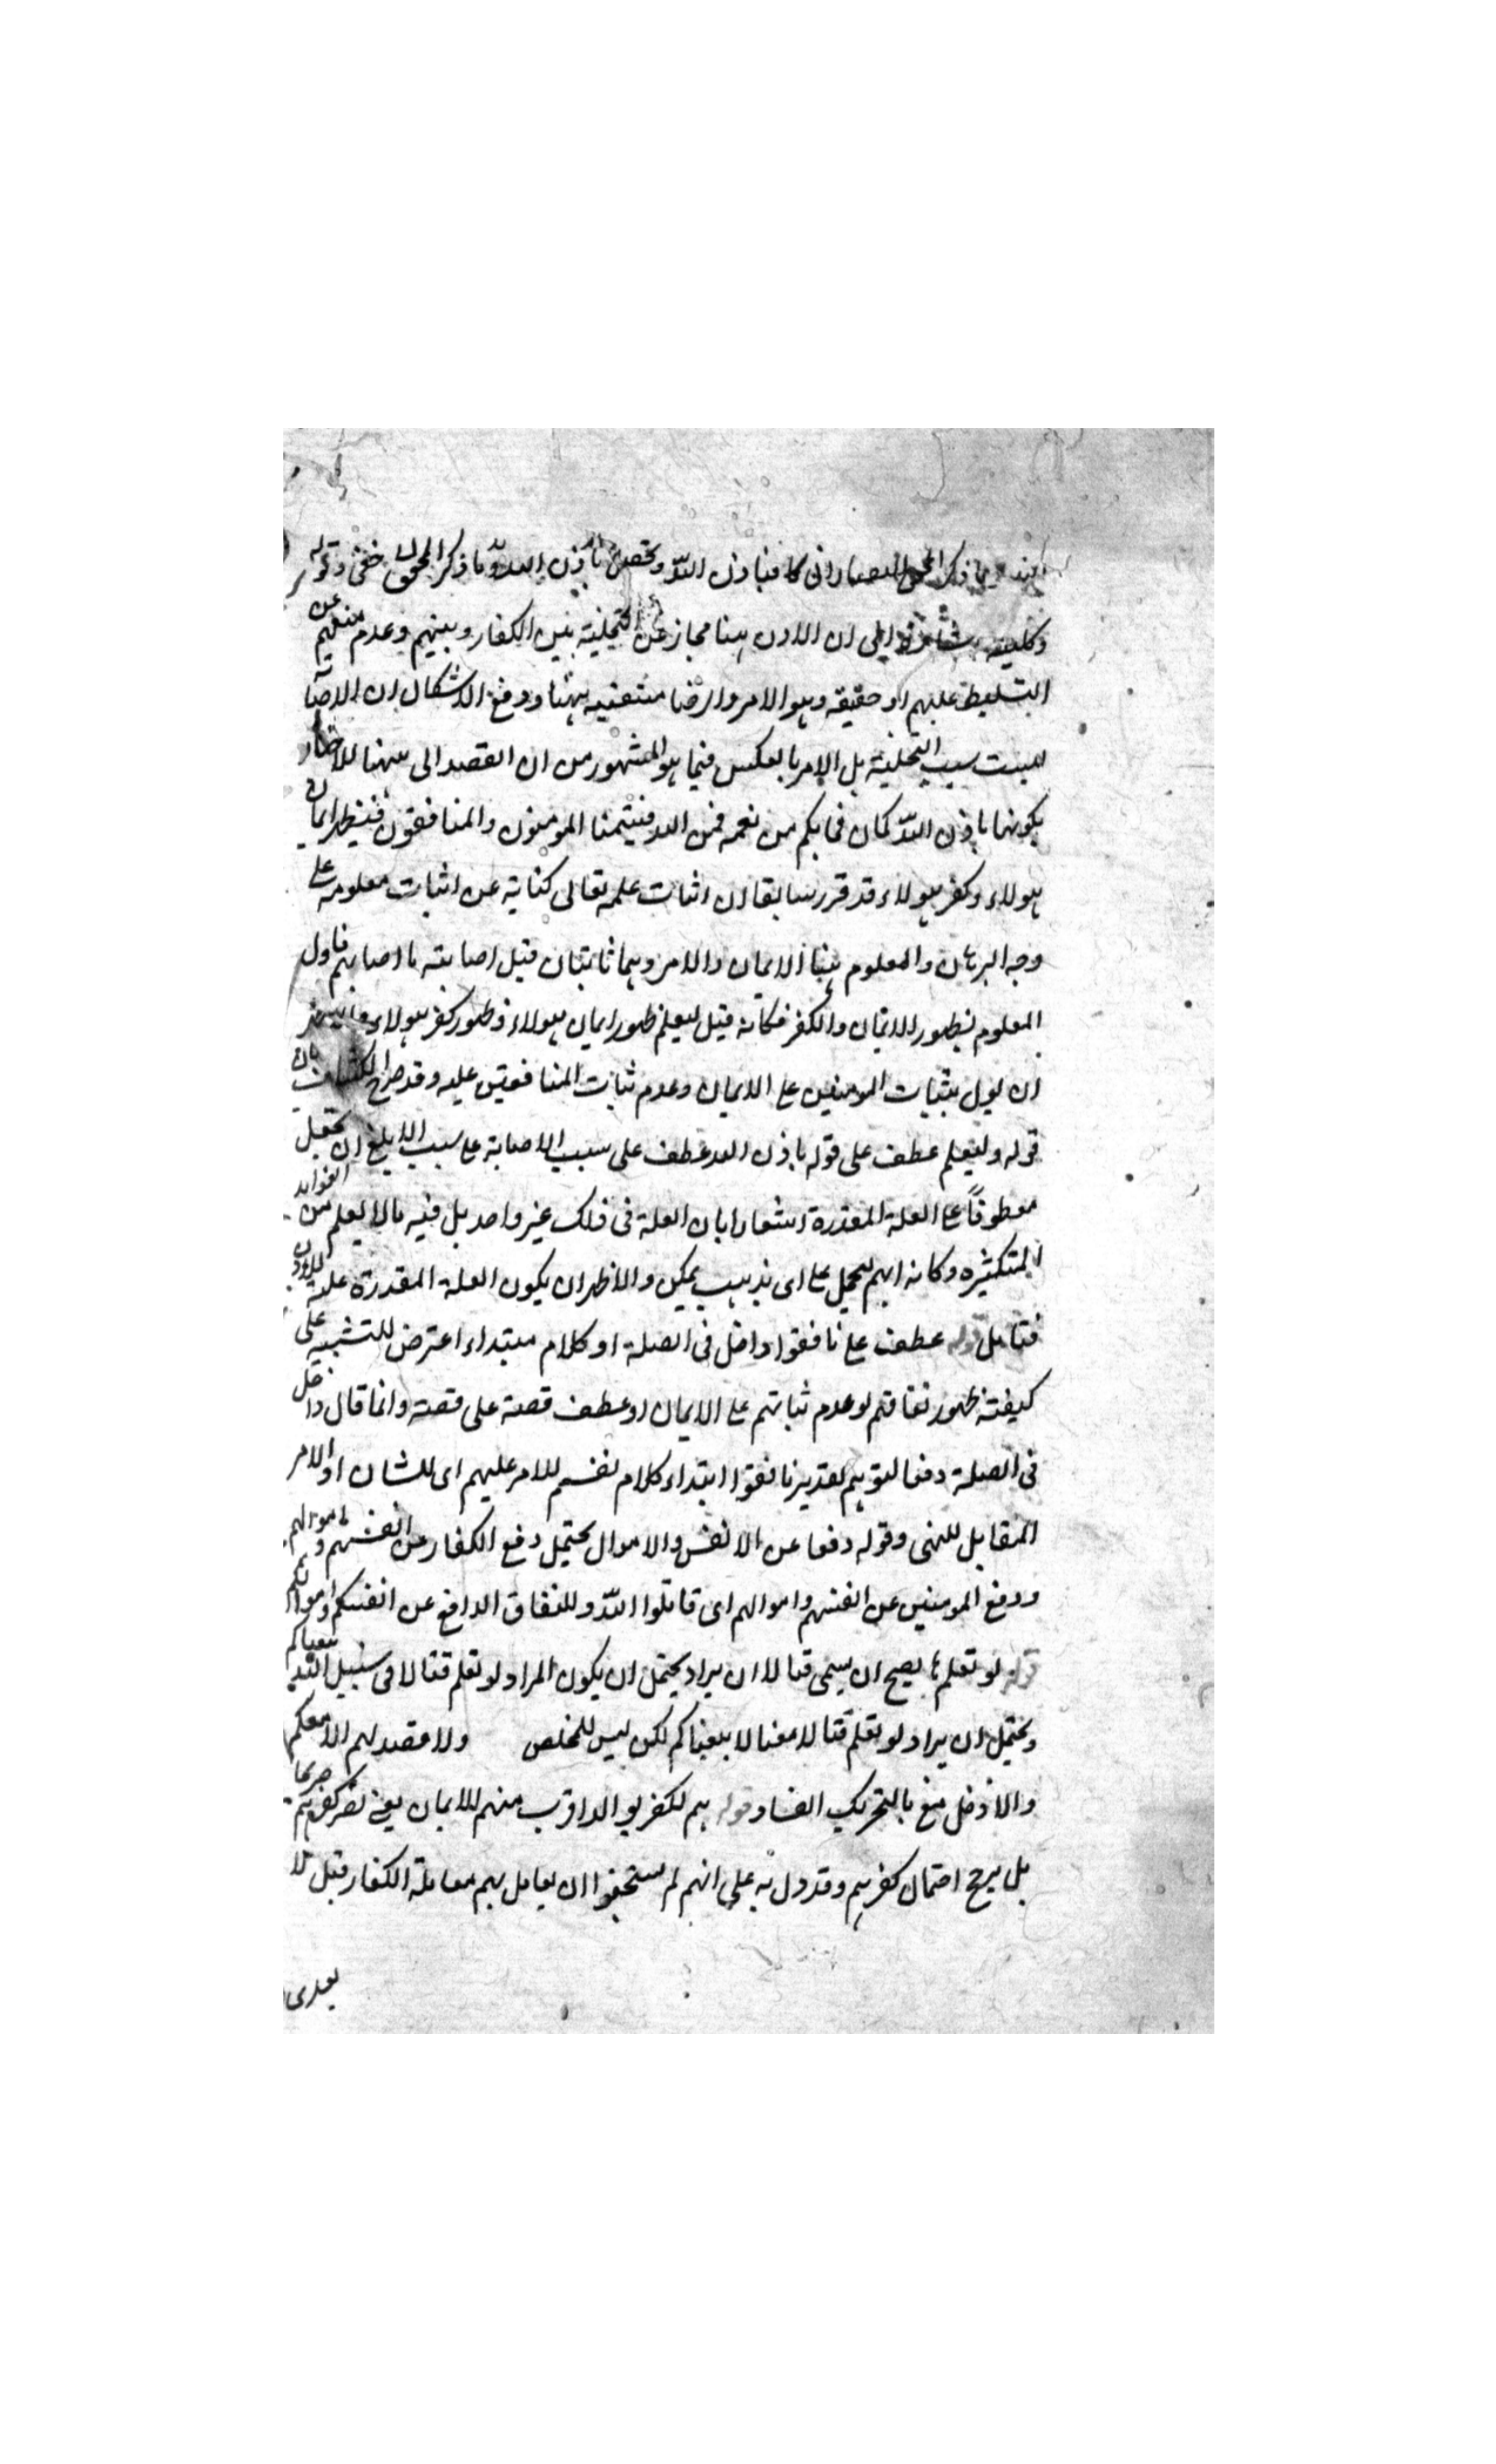 ما ذكر المحق ان كائنا باذن الله وتحصل باذن الله وما ذكر المحق خفى وقوله
وتخليته اشارة الى ان الاذن ههنا مجاز عن التخلية بين الكفار وبينهم وعدم منعهم عن
التسليط عليهم اذ حقيقة وهو الامر والرضا منتفية ههنا ودفع الاشكال ان الاصابة
ليست سبب التخلية بل الامر بالعكس فيما هو المشهور من ان القصد الى ههنا للاخبار
بكونها باذن الله كما فى بكم من نعمة فمن الله فيتميز المومنون والمنافقون فيظهر ايمان
هولاء وكفر هولاء قد قرر سابقا ان اثبات علمه تعالى كناية عن اثبات معلومه على
وجه البرهان والمعلوم ههنا الايمان والامر وهما ثابتان قبل اصابته ما اصابهم فاول
المعلوم بظهور الايمان والكفر فكانه قيل ليعلم ظهور ايمان هولاء وظهور كفر هولاء
ان يول بثبات المومنين على الايمان وعدم ثبات المنافقين عليه وقد صرح الكشاف بان
قوله وليعلم عطف على قوله باذن الله عطف على سبب الاصابة على سبب الابلغ ان يجعل
معطوفا على العلة المقدرة اشعارا بان العلة فى ذلك غير واحد بل فيه مالا يعلم من الفوايد
المتكثرة وكانه ابهم ليحمل على اى مذهب يمكن والاظهر ان يكون العلة المقدرة علية للاذن
فتامل قوله عطف على نافقوا داخل فى الصلة او كلام مبتداء اعترض للتنبيه على
كيفية ظهور نفاقهم او عدم ثباتهم على الايمان او عطف قصة على قصة وانما قال داخل
فى الصلة دفعا لتوهم تقدير نافقوا ابتداء كلام تقسيم للامر عليهم اى للشان او الامر
المقابل للنهى وقوله دفعا عن الانفس والاموال يحتمل دفع الكفار عن انفسهم واموالهم
ودفع المومنين عن انفسهم واموالهم اى قاتلوا الله وللنفاق الدافع عن انفسكم واموالكم
قوله لو نعلم ما يصح ان يسمى قتالا ان يراد يحتمل ان يكون المراد لو نعلم قتالا فى سبيل الله لاتبعناكم
ويحتمل ان يراد لو نعلم قتالا معنا لاتبعناكم لكن ليس للمخلص ولا مقصد لهم الا معكم
والادخل منع بالتحريك الفساد قوله هم للكفر يومئذ اقرب منهم للايمان يعنى كفرهم
بل يرجح احتمال كفرهم وقد دل به على انهم لم يستحقوا ان يعامل بهم معاملة الكفار قبل